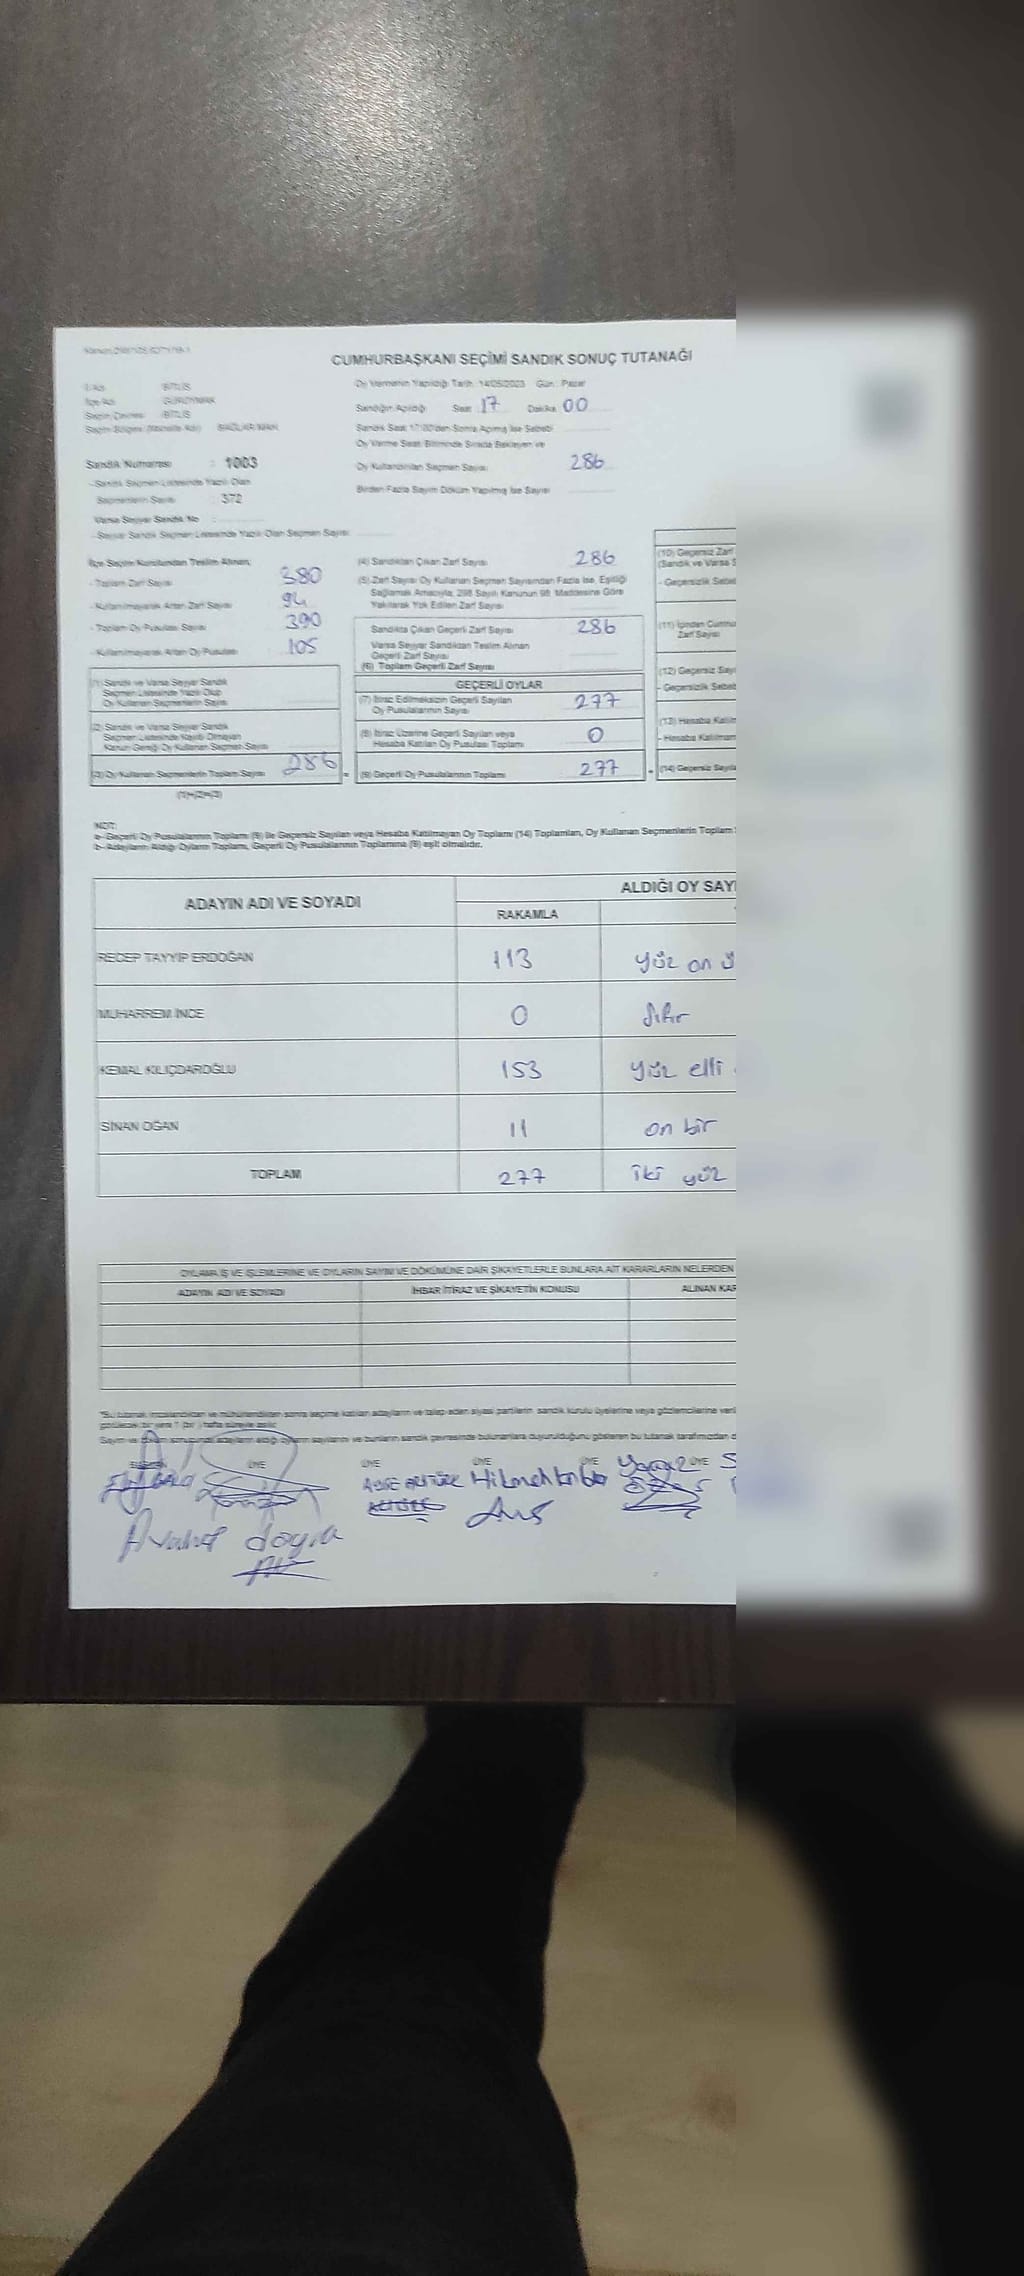 CUMHURBAŞKANI SEÇİMİ SANDIK SONUÇ TUTANAĞI
İl Adı BİTLİS
İlçe Adı GÜROYMAK
Seçim Çevresi BİTLİS
Oy Vermenin Yapıldığı Tarih: 14/05/2023 Gün: Pazar
Sandığın Açıldığı Saat 17 Dakika 00
Sandık Saat 17:00'den Sonra Açılmış İse Sebebi
Oy Verme Saati Bitiminde Sırada Bekleyen ve
Oy Kullandırılan Seçmen Sayısı 286
Birden Fazla Sayım Döküm Yapılmış İse Sayısı
Sandık Numarası : 1003
- Sandık Seçmen Listesinde Yazılı Olan
Seçmenlerin Sayısı : 372
Varsa Seyyar Sandık No :
- Seyyar Sandık Seçmen Listesinde Yazılı Olan Seçmen Sayısı
İlçe Seçim Kurulundan Teslim Alınan;
- Toplam Zarf Sayısı 380
- Kullanılmayarak Artan Zarf Sayısı 94
- Toplam Oy Pusulası Sayısı 390
- Kullanılmayarak Artan Oy Pusulası 105
(1) Sandık ve Varsa Seyyar Sandık
Seçmen Listesinde Yazılı Olup
Oy Kullanan Seçmenlerin Sayısı
(2) Sandık ve Varsa Seyyar Sandık
Seçmen Listesinde Kayıtlı Olmayan
Kanun Gereği Oy Kullanan Seçmen Sayısı
(3) Oy Kullanan Seçmenlerin Toplam Sayısı 286
(1)+(2)=(3)
(4) Sandıktan Çıkan Zarf Sayısı 286
(5) Zarf Sayısı Oy Kullanan Seçmen Sayısından Fazla İse, Eşitliği
Sağlamak Amacıyla, 298 Sayılı Kanunun 98. Maddesine Göre
Yakılarak Yok Edilen Zarf Sayısı
Sandıkta Çıkan Geçerli Zarf Sayısı 286
Varsa Seyyar Sandıktan Teslim Alınan
Geçerli Zarf Sayısı
(6) Toplam Geçerli Zarf Sayısı
GEÇERLİ OYLAR
(7) İtiraz Edilmeksizin Geçerli Sayılan
Oy Pusulalarının Sayısı 277
(8) İtiraz Üzerine Geçerli Sayılan veya
Hesaba Katılan Oy Pusulası Toplamı 0
(9) Geçerli Oy Pusulalarının Toplamı 277
(10) Geçersiz Zarf
(Sandık ve Varsa S
- Geçersizlik Sebeb
(11) İçinden Cumhu
Zarf Sayısı
(12) Geçersiz Sayı
- Geçersizlik Sebeb
(13) Hesaba Katılm
- Hesaba Katılmam
(14) Geçersiz Sayıla
NOT:
a- Geçerli Oy Pusulalarının Toplamı (9) ile Geçersiz Sayılan veya Hesaba Katılmayan Oy Toplamı (14) Toplamları, Oy Kullanan Seçmenlerin Toplam
b- Adayların Aldığı Oyların Toplamı, Geçerli Oy Pusulalarının Toplamına (9) eşit olmalıdır.
ADAYIN ADI VE SOYADI
ALDIĞI OY SAYI
RAKAMLA
RECEP TAYYİP ERDOĞAN 113 yüz on ü
MUHARREM İNCE 0 sıfır
KEMAL KILIÇDAROĞLU 153 yüz elli
SİNAN OĞAN 11 on bir
TOPLAM 277 iki yüz
OYLAMA İŞ VE İŞLEMLERİNE VE OYLARIN SAYIM VE DÖKÜMÜNE DAİR ŞİKAYETLERLE BUNLARA AİT KARARLARIN NELERDEN
ADAYIN ADI VE SOYADI İHBAR İTİRAZ VE ŞİKAYETİN KONUSU ALINAN KAR
ÜYE ÜYE ÜYE ÜYE ÜYE